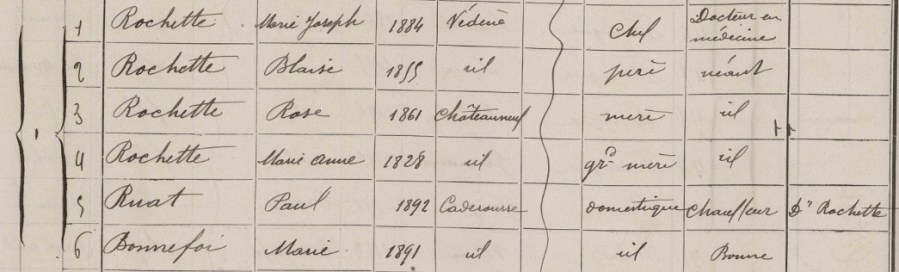 1 Rochette Marie Joseph 1884 Védène Chef Docteur en médecine
2 Rochette Blaise 1855 id père néant
3 Rochette Rose 1861 Châteauneuf mère id
4 Rochette Marie Anne 1828 id gde mère id
5 Ruat Paul 1892 Caderousse domestique Chauffeur Dr Rochette
6 Bonnefoi Marie 1891 id id Bonne